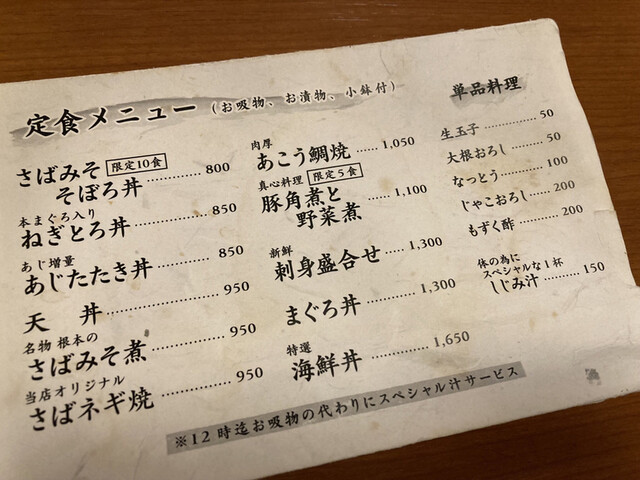 定食メニュー (お吸物、お漬物、小鉢付)
さばみそ 限定10食
そぼろ丼 ………… 800
本まぐろ入り
ねぎとろ丼 ………… 850
あじ増量
あじたたき丼 ………… 850
天 丼 ………… 950
名物 根本の
さばみそ煮 ………… 950
当店オリジナル
さばネギ焼 ………… 950
肉厚
あこう鯛焼 …… 1,050
真心料理 限定5食
豚角煮と
野菜煮 …… 1,100
新鮮
刺身盛合せ …… 1,300
まぐろ丼 ………… 1,300
特選
海鮮丼 ………… 1,650
単品料理
生玉子 ………… 50
大根おろし ……… 50
なっとう ………… 100
じゃこおろし …… 200
もずく酢 ………… 200
体の為に
スペシャルな1杯
しじみ汁 ………… 150
※12時迄お吸物の代わりにスペシャル汁サービス